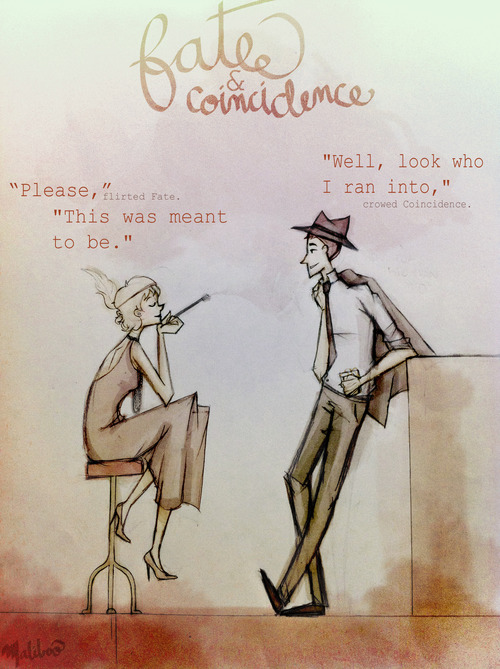 fate
&
coincidence
"Well, look who
I ran into,"
crowed Coincidence.
“Please,” flirted Fate.
"This was meant
to be."